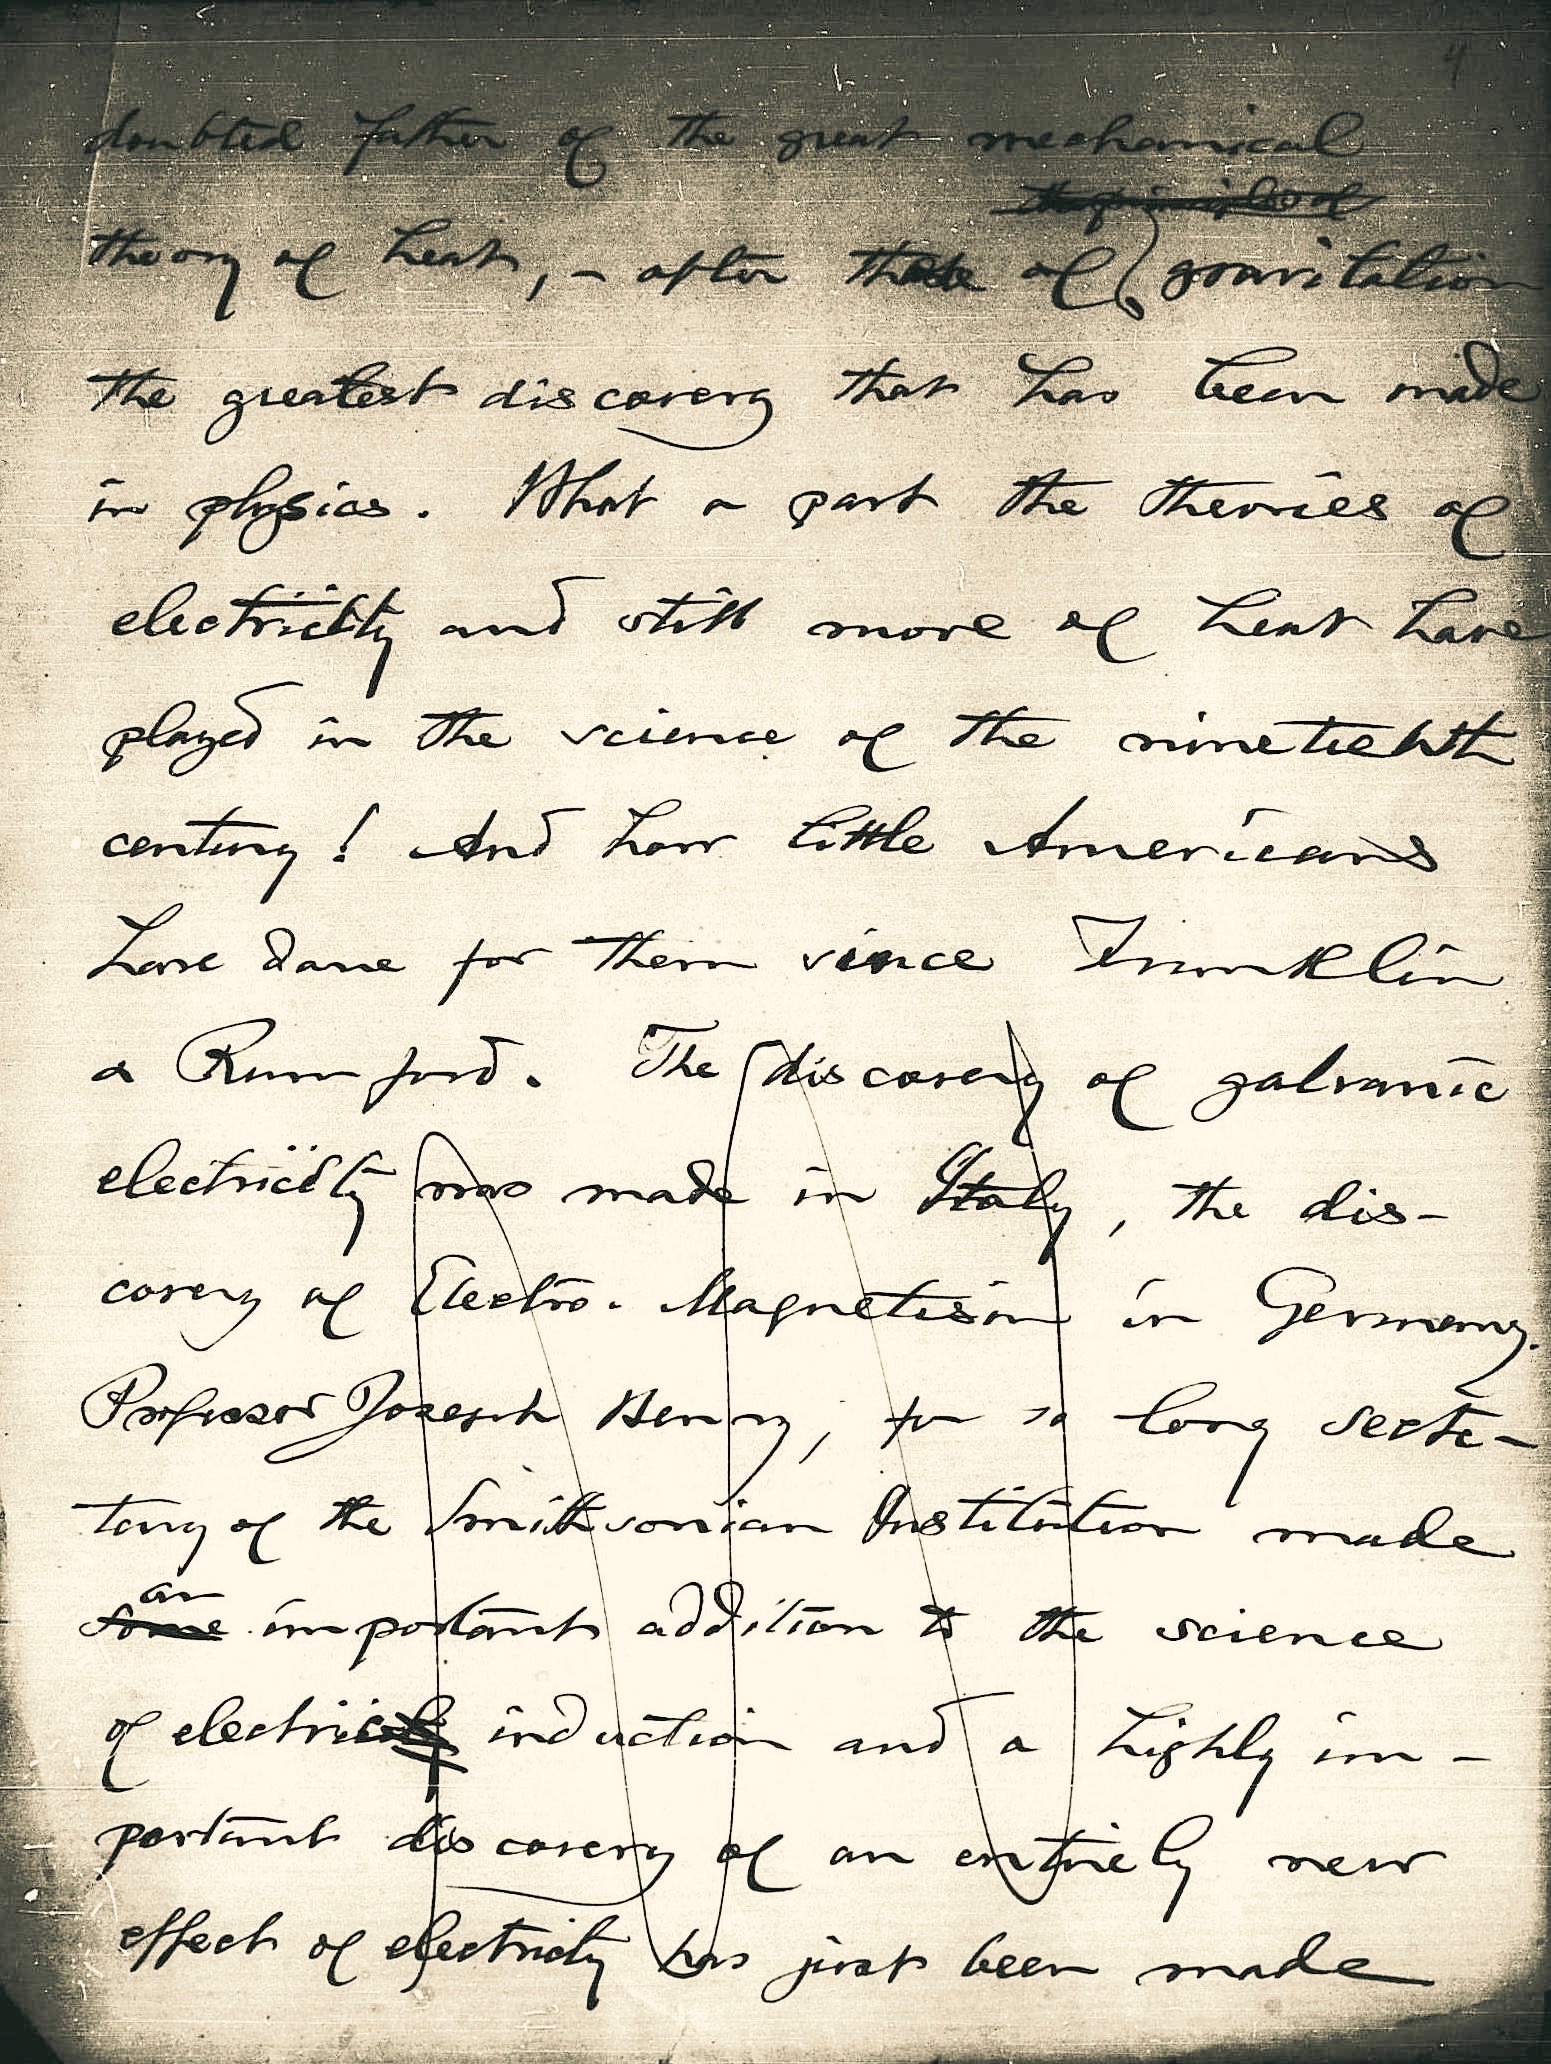 4
doubted father of the great mechanical
the principle of
theory of heat, – after that of gravitation
the greatest discovery that has been made
in physics. What a part the theories of
electricity and still more of heat have
played in the science of the nineteenth
century! And how little Americans
have done for them since Franklin
& Rumford. The discovery of galvanic
electricity was made in Italy, the dis-
covery of Electro-Magnetism in Germany.
Professor Joseph Henry, for so long secre-
tary of the Smithsonian Institution made
an
some important addition to the science
of electrical induction and a highly im-
portant discovery of an entirely new
effect of electricity has just been made